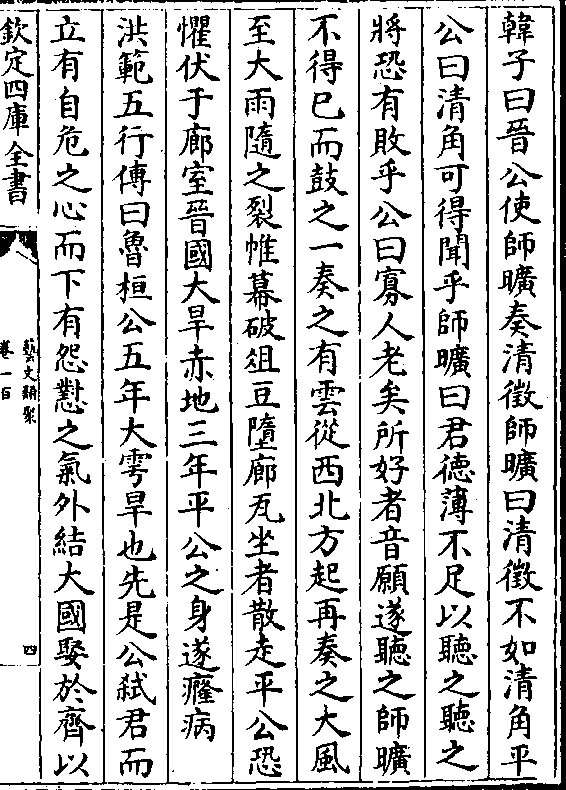 韓子曰晉公使師曠奏清徵師曠曰清徵不如清角平
公曰清角可得聞乎師曠曰君德薄不足以聽之聽之
將恐有敗乎公曰寡人老矣所好者音願遂聽之師曠
不得已而鼓之一奏之有雲從西北方起再奏之大風
至大雨隨之裂帷幕破俎豆墮廊瓦坐者散走平公恐
懼伏于廊室晉國大旱赤地三年平公之身遂癃病
洪範五行傳曰魯桓公五年大雩旱也先是公弑君而
立有自危之心而下有怨懟之氣外結大國娶於齊以
欽定四庫全書
藝文類聚
卷一百
四